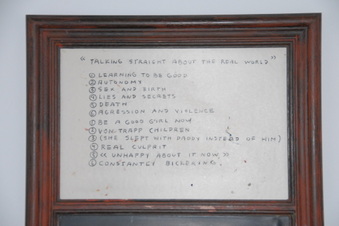 "TALKING STRAIGHT ABOUT THE REAL WORLD"
① LEARNING TO BE GOOD
② AUTONOMY
③ SEX AND BIRTH
④ LIES AND SECRETS
⑤ DEATH
⑥ AGRESSION AND VIOLENCE
BE A GOOD GIRL NOW
VON TRAPP CHILDREN
(SHE SLEPT WITH INSTEAD OF HIM)
REAL CULPRIT
"UNHAPPY ABOUT IT NOW"
CONSTANTLY BICKERING